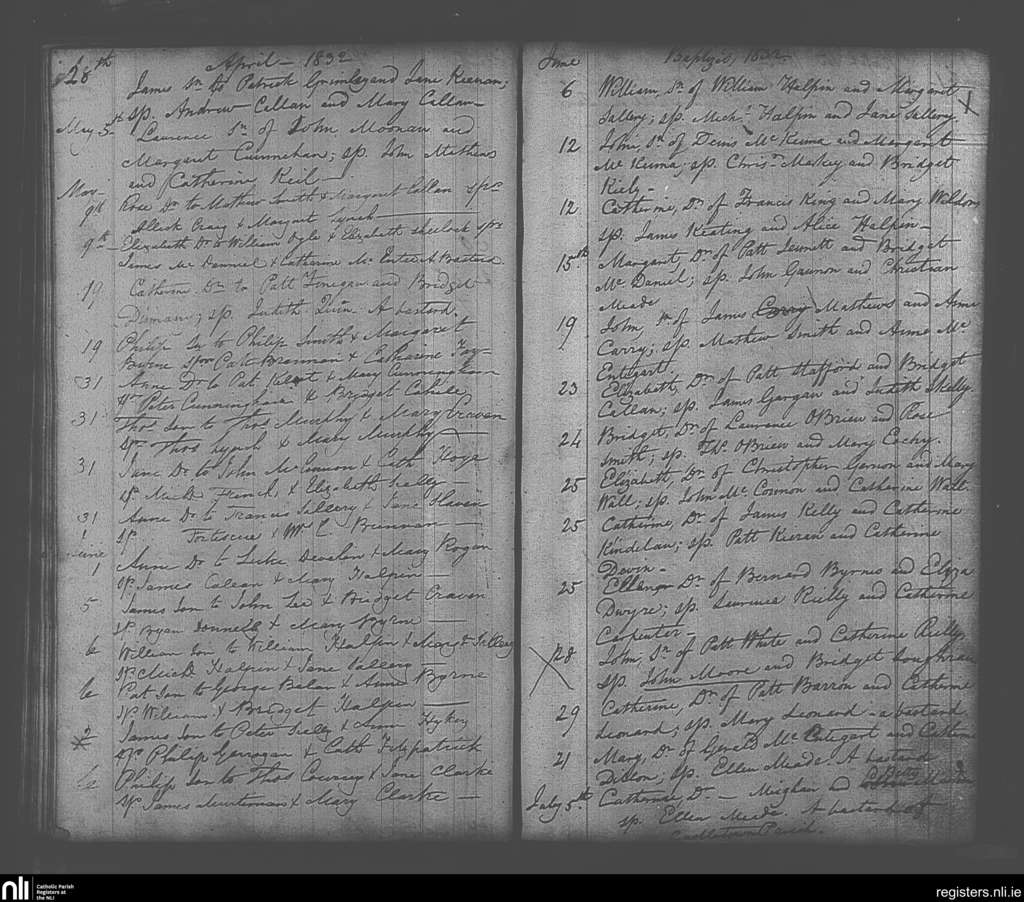 April - 1832
28th James Sn to Patrick Grimley and Jane Keenan;
sp. Andrew Callan and Mary Callan
May 5th Laurence Sn of John Moonan and
Margaret Cunnehan; sp. John Mathews
and Catherine Keil -
May 9th Rose Dr to Mathew Smith & Margaret Callan sps
Allick Craig & Margaret Lynch
9th Elizabeth Dr to William Ogle & Elizabeth Sheelock sps
James Mc Donnel & Catharine Mc Entee A Bastard
19 Catherine Dr to Patt Finegan and Bridget
sp. Judith Quin A bastard.
19 Philip Sn to Philip Smith & Margaret
Byrne Spr Patt Brennan & Catharine Fay-
31 Anne Dr to Pat & Mary Cunningham
Peter Cunningham & Bridget Cahile
31 Thos Son to Thos Murphy & Mary Craven
Sps Thos Lynch & Mary Murphy
31 Jane Dr to John McConnon & Cath Hoye
Sps Michl French & Elizabeth Scally -
31 Anne Dr to Francis Sallery & Jane Slavin
Sp Fortescue & Wm C. Brennan
June 1 Anne Dr to Luke Devalon & Mary Rogan
Sps James Calean & Mary Halpen
5 James Son to John Lee & Bridget Craven
Sp Bryan Donnell & Mary Byrne
6 William Son to William Halpen & Margt Sallery
Sps Michl Halpen & Jane Sallery
6 Pat Son to George Balan & Anne Byrne
Sps William & Bridget Halpen
2 James Son to Peter Scally & Ann
Sps Philip Garragan & Cath Fitzpatrick
Philip Son to Thos & Jane Clarke
Sps James & Mary Clarke -
June Baptyzd, 1832.
6 William, Sn of William Halpin and Margaret
Sallery; sp. Michl Halpin and Jane Sallery. X
12 John, Sn of Denis Mc Kenna and Margaret
Mc Kenna; sp. Christr Markey and Bridget
Kiely -
12 Catherine, Dr of Francis King and Mary Weldon,
sp. James Keating and Alice Halpin -
15th Margaret, Dr of Patt and Bridget
Mc Daniel; sp. John Gaunon and Christian
Meade
19 John, Sn of James Carry Mathews and Anne
Carry; sp. Mathew Smith and Anne Mc
Entegart.
23 Elizabeth, Dr of Patt Stafford and Bridget
Callan; sp. James Gargan and Judith Skelly.
24 Bridget, Dr of Laurence OBrien and Rose
Smith; sp. Ths OBrien and Mary
25 Elizabeth, Dr of Christopher Gernon and Mary
Wall; sp. John Mc Connon and Catherine Wall
25 Catherine, Dr of James Kelly and Catherine
Kindelan; sp. Patt Kieran and Catherine
Devin -
25 Ellenor Dr of Bernard Byrnes and Eliza
Dwyre; sp. Laurence Reilly and Catherine
Carpenter -
X 28 John, Sn of Patt White and Catherine Reilly,
sp. John Moore and Bridget Loughran
29 Catherine, Dr of Patt Barron and Catherine
Leonard; sp. Mary Leonard - a bastard
21 Mary, Dr of Gerald Mc Entegart and Catherine
Dillon; sp. Ellen Meade. A bastard
July 5th Catherine, Dr - Meighan and Betty
sp. Ellen Meade. A bastard of
Castletown Parish.
nli
Catholic Parish
Registers at
the NLI
registers.nli.ie